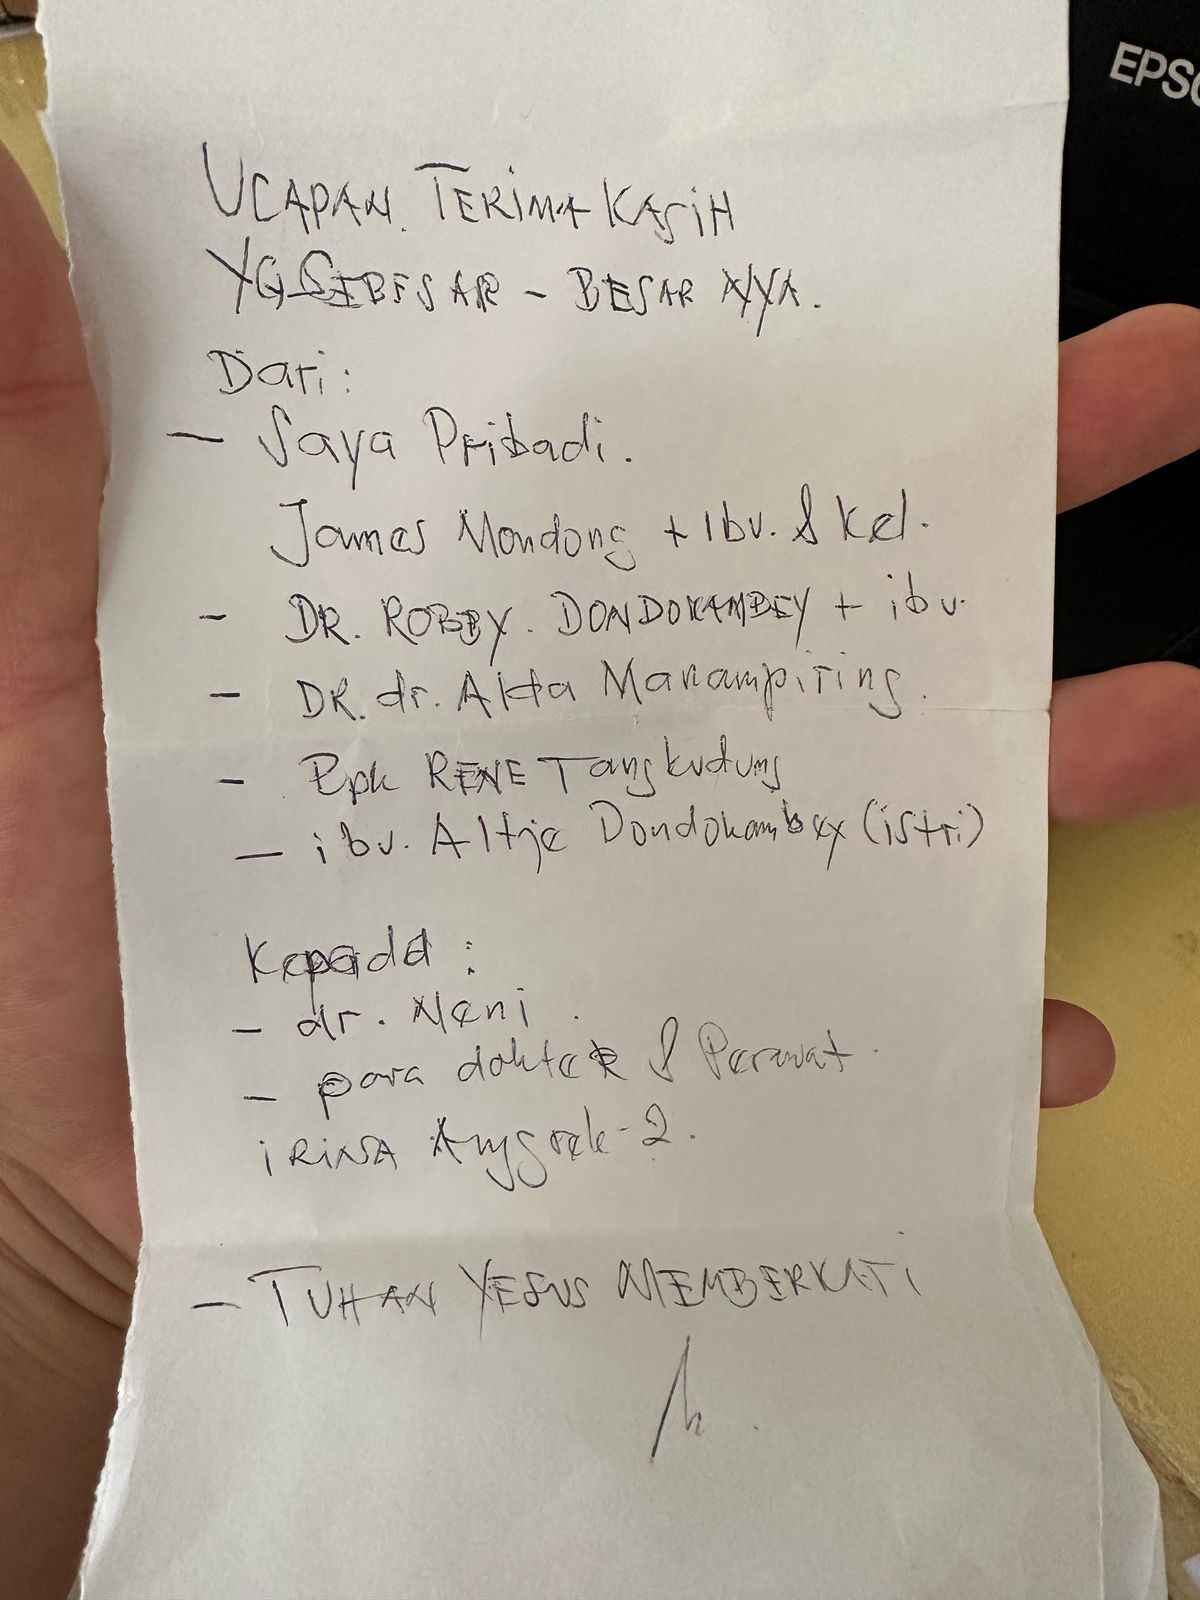 EPSO
UCAPAN TERIMA KASiH
YG SEBESAR - BESAR NYA.
Dari:
- Saya Pribadi.
James Mondong + Ibu. & Kel.
- DR. ROBBY. DONDOKAMBEY + ibu.
- DR. dr. Alda Manampiring.
- Bpk RENE Tangkudung
- ibu. Altje Dondokambey (istri)
Kepada :
- dr. Meni.
- para dokter & Perawat.
iRiNA Anggrek-2.
- TUHAN YESUS MEMBERKATi